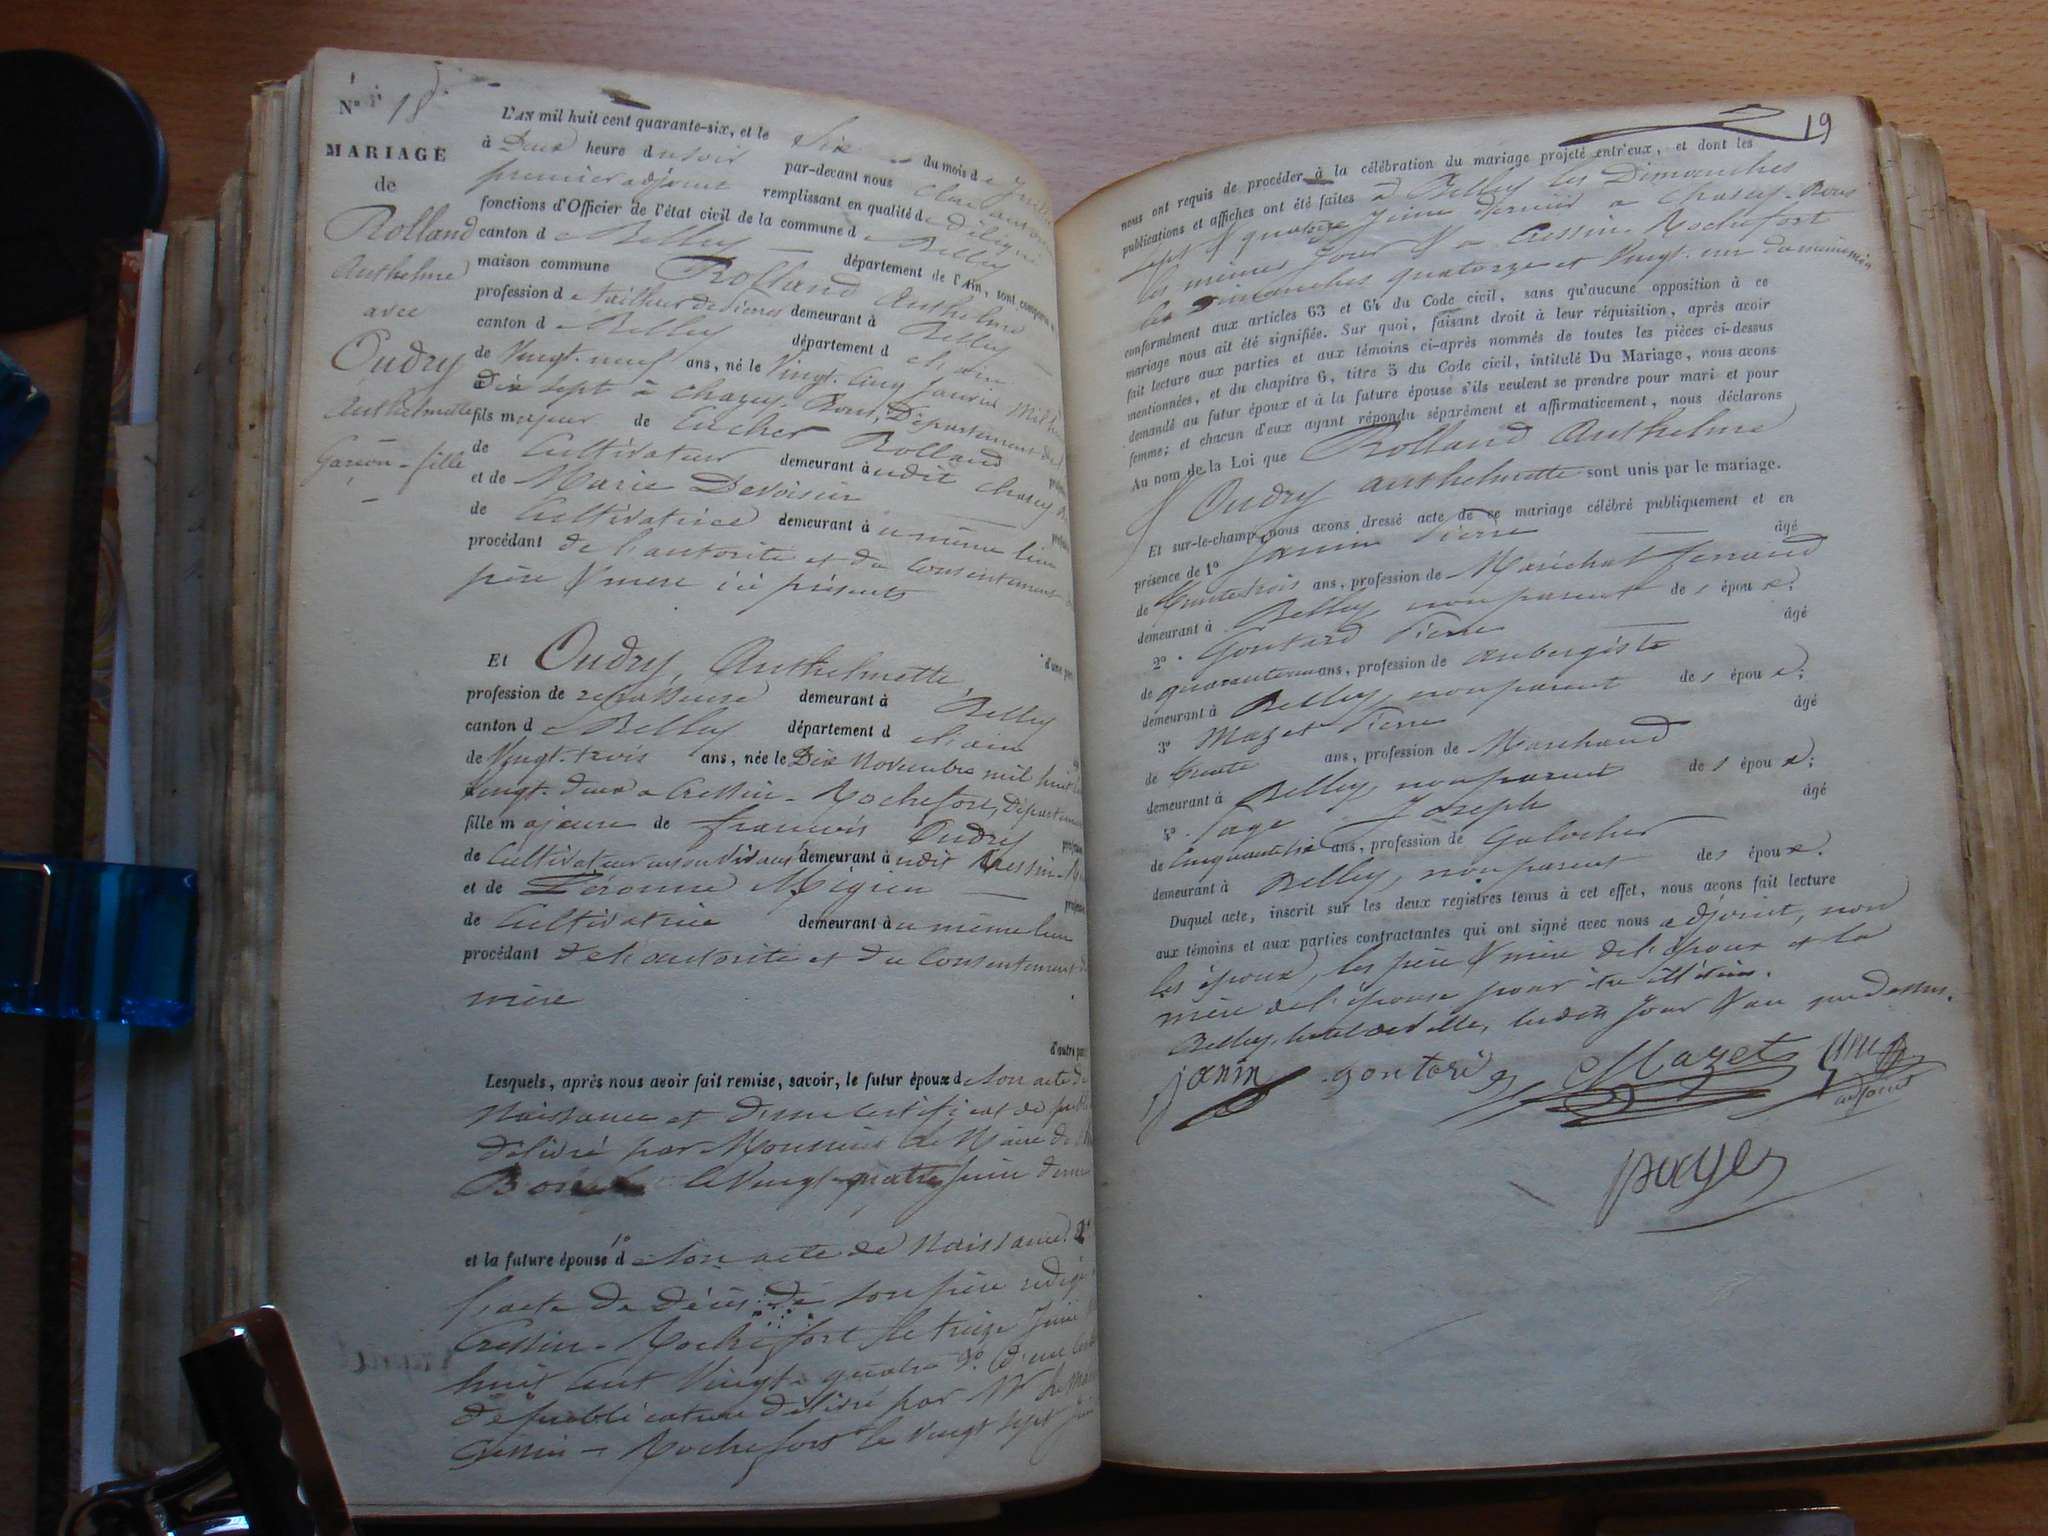 N° 18
MARIAGE
de
Rolland
Anthelme
avec
Oudry
Anthelmette
Garçon - fille
L'AN mil huit cent quarante-six, et le Six du mois de
à Deux heure du soir par-devant nous
premier adjoint remplissant en qualité de délégué
fonctions d'Officier de l'état civil de la commune de Belley
canton de Belley département de l'Ain, sont comparus
maison commune Rolland Anthelme
profession de tailleur de pierres demeurant à Belley
canton de Belley département de l'ain
de Vingt-neuf ans, né le Vingt-Cinq Janvier Mil
Dix sept à Chazey-Bons, Département de
fils majeur de Eucher Rolland
de Cultivateur demeurant à udit Chazey
et de Marie Devoisin
de Cultivatrice demeurant à u même lieu
procédant de l'autorité et du Consentement
père & mère ici présents
d'une part
Et Oudry, Anthelmette,
profession de repasseuse demeurant à Belley
canton de Belley département de l'ain
de Vingt-trois ans, née le Dix Novembre mil huit
Vingt-deux à Cressin-Rochefort, Département
fille majeure de françois Oudry
de Cultivateur en son vivant demeurant à udit Cressin-
et de Péronne Migieu
de Cultivatrice demeurant à u même lieu
procédant de l'autorité et du Consentement de
mère
d'autre part
Lesquels, après nous avoir fait remise, savoir, le futur époux de son acte de
Naissance et d'un certificat de
délivré par Monsieur le Maire de
le Vingt-quatre Juin dernier
et la future épouse 1° de son acte de Naissance 2°
l'acte de décès de son père rédigé
Cressin-Rochefort le treize Juin
huit Cent Vingt-quatre 3° d'un
de publication délivré par Mr le Maire
Cressin-Rochefort le Vingt sept Juin
19
nous ont requis de procéder à la célébration du mariage projeté entr'eux, et dont les
publications et affiches ont été faites à Belley les Dimanches
sept & quatorze Juin dernier à Chazey-Bons
les mêmes Jours & à Cressin-Rochefort
les Dimanches quatorze et Vingt-un du même mois
conformément aux articles 63 et 64 du Code civil, sans qu'aucune opposition à ce
mariage nous ait été signifiée. Sur quoi, faisant droit à leur réquisition, après avoir
fait lecture aux parties et aux témoins ci-après nommés de toutes les pièces ci-dessus
mentionnées, et du chapitre 6, titre 5 du Code civil, intitulé Du Mariage, nous avons
demandé au futur époux et à la future épouse s'ils veulent se prendre pour mari et pour
femme; et chacun d'eux ayant répondu séparément et affirmativement, nous déclarons
Au nom de la Loi que Rolland Anthelme
& Oudry anthelmette sont unis par le mariage.
Et sur-le-champ nous avons dressé acte de ce mariage célébré publiquement et en
présence de 1° Janin Pierre âgé
de trente trois ans, profession de Maréchal ferrand
demeurant à Belley, non parent des époux;
2° Goutard Pierre âgé
de quarante un ans, profession de aubergiste
demeurant à Belley, non parent des époux;
3° Mazet Pierre âgé
de trente ans, profession de Marchand
demeurant à Belley, non parent des époux;
4° Page Joseph âgé
de Cinquante six ans, profession de Galocher
demeurant à Belley, non parent des époux.
Duquel acte, inscrit sur les deux registres tenus à cet effet, nous avons fait lecture
aux témoins et aux parties contractantes qui ont signé avec nous adjoint, non
les époux, les père & mère de l'époux et la
mère de l'épouse pour être illétérés.
Belley, hotel de ville, lesdits Jour & an que dessus.
janin goutard Mazet
adjoint
page